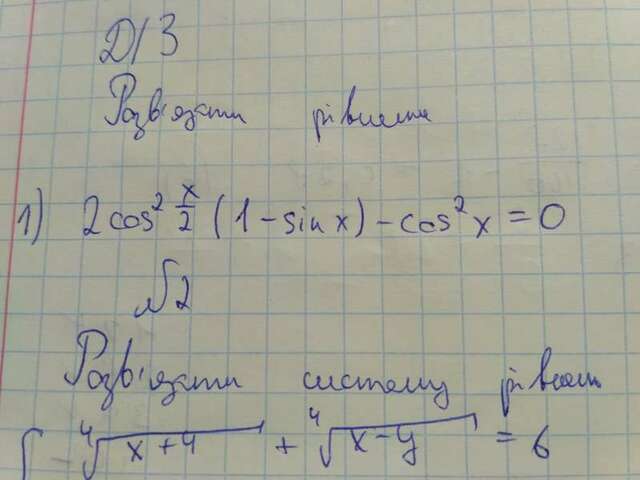 Д/З
Розв'язати рівняння
1) 2cos² x/2 (1 - sin x) - cos² x = 0
№2
Розв'язати систему рівнень
{ ⁴√(x + 4) + ⁴√(x - y) = 6